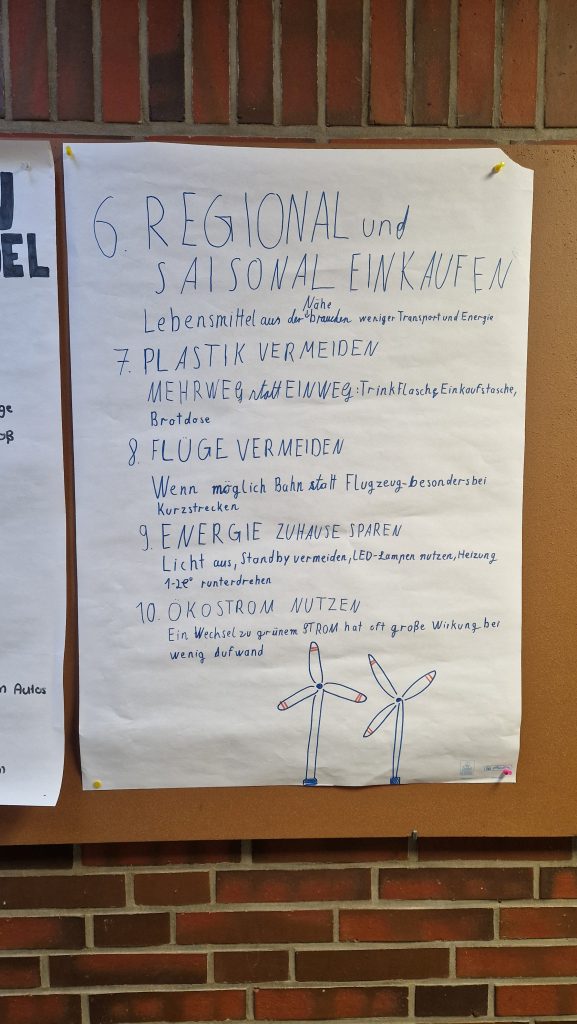 U
DEL
ge
oß
n Autos
n
6. REGIONAL und
SAISONAL EINKAUFEN
Lebensmittel aus der Nähe brauchen weniger Transport und Energie
7. PLASTIK VERMEIDEN
MEHRWEG statt EINWEG: Trinkflasche, Einkaufstasche,
Brotdose
8. FLÜGE VERMEIDEN
Wenn möglich Bahn statt Flugzeug-besonders bei
Kurzstrecken
9. ENERGIE ZUHAUSE SPAREN
Licht aus, Standby vermeiden, LED-Lampen nutzen, Heizung
1-2C° runterdrehen
10. ÖKOSTROM NUTZEN
Ein Wechsel zu grünem STROM hat oft große Wirkung bei
wenig Aufwand